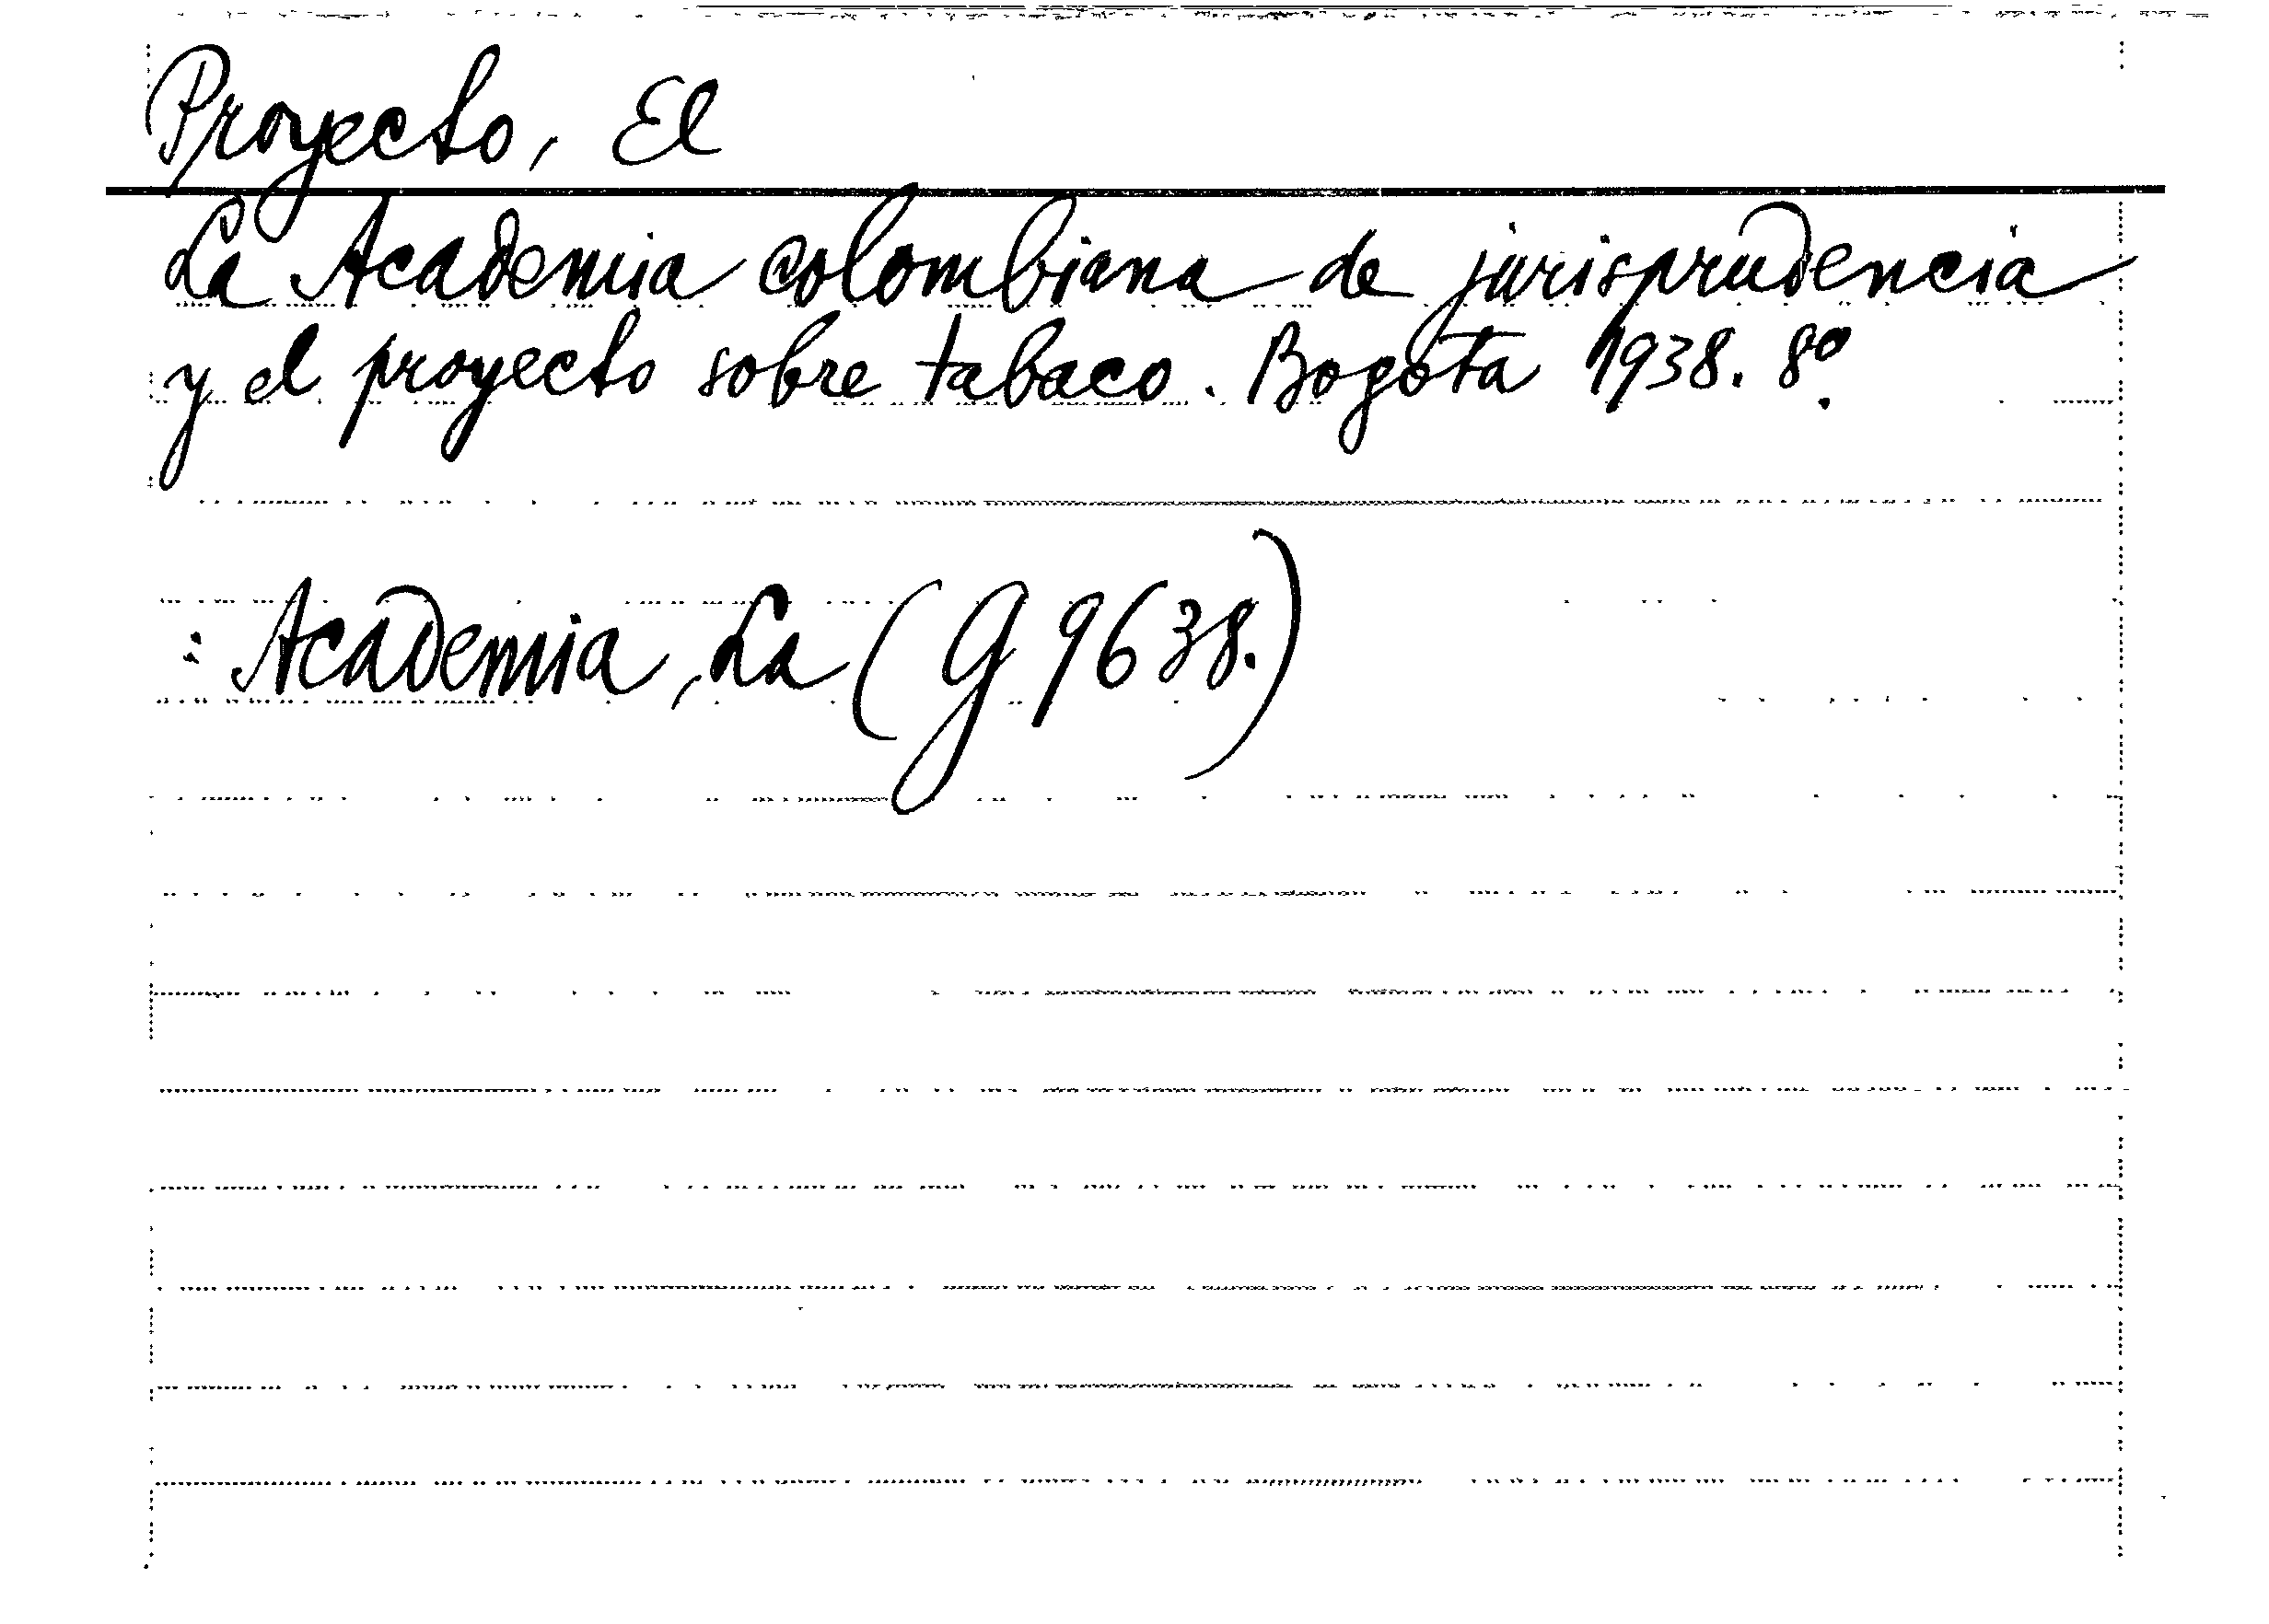 Proyecto, El
La Academia colombiana de jurisprudencia
y el proyecto sobre tabaco. Bogota 1938. 8º.
: Academia, La (G 9638.)